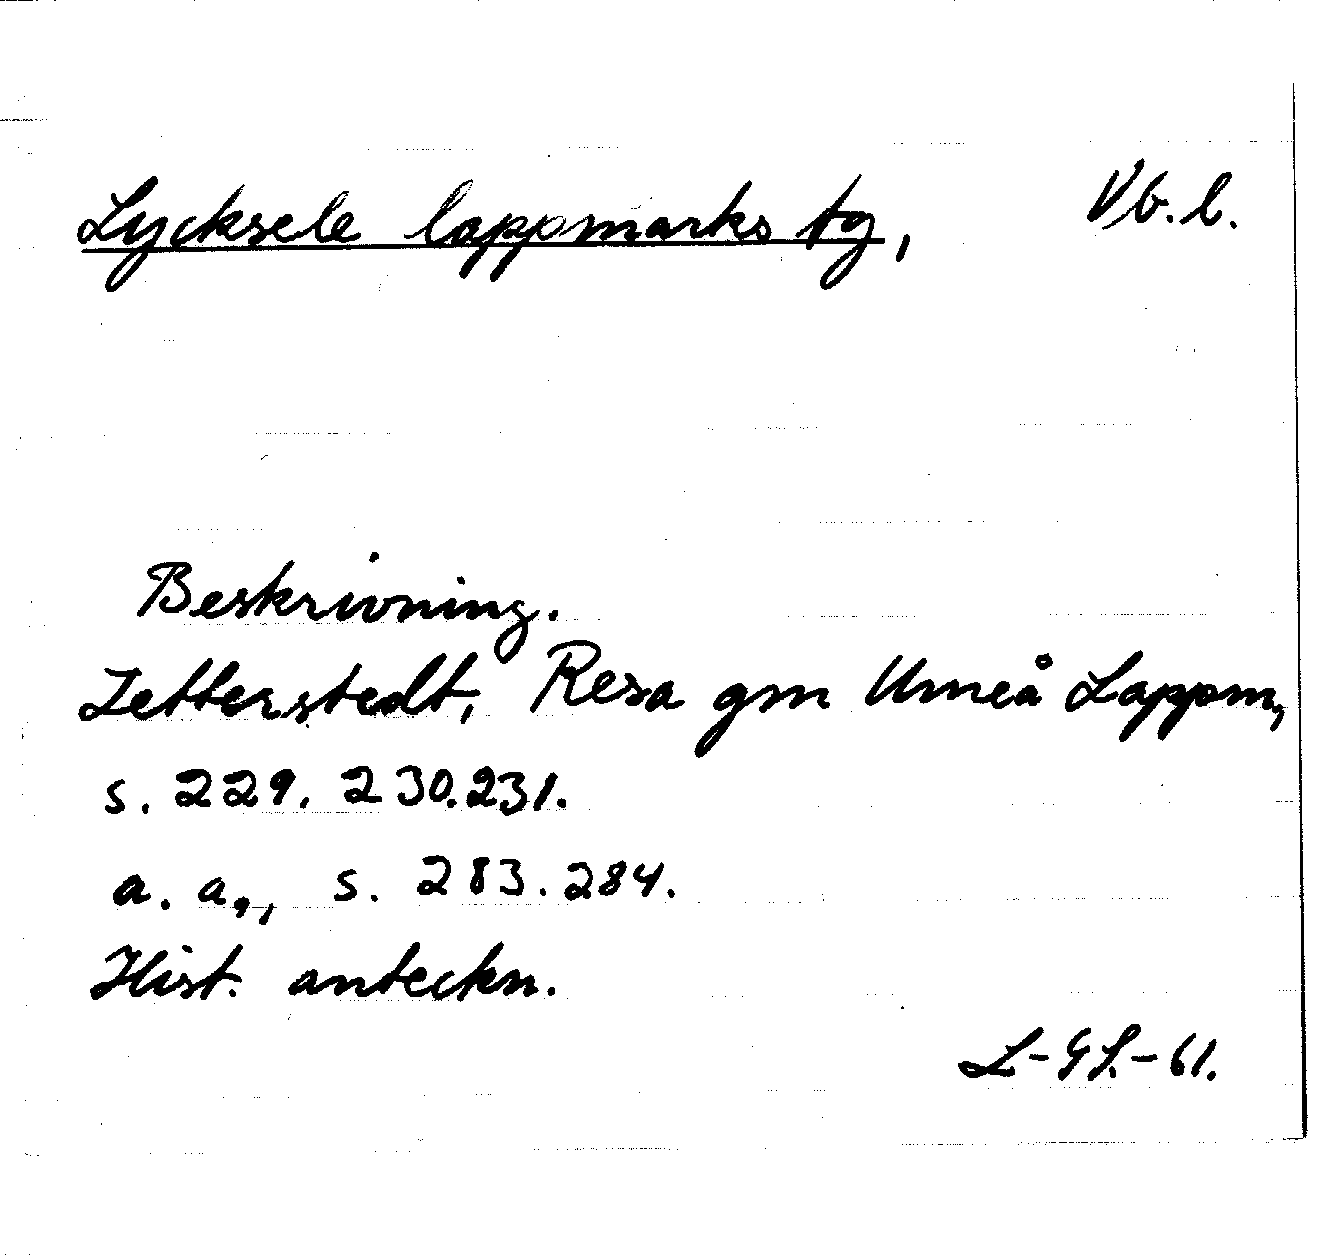 Lycksele lappmarks tg, Vb.l.
Beskrivning.
Zetterstedt, Resa gm Umeå Lappm,
s. 229. 230.231.
a. a., s. 283.284.
Hist. anteckn.
L-GL.-61.